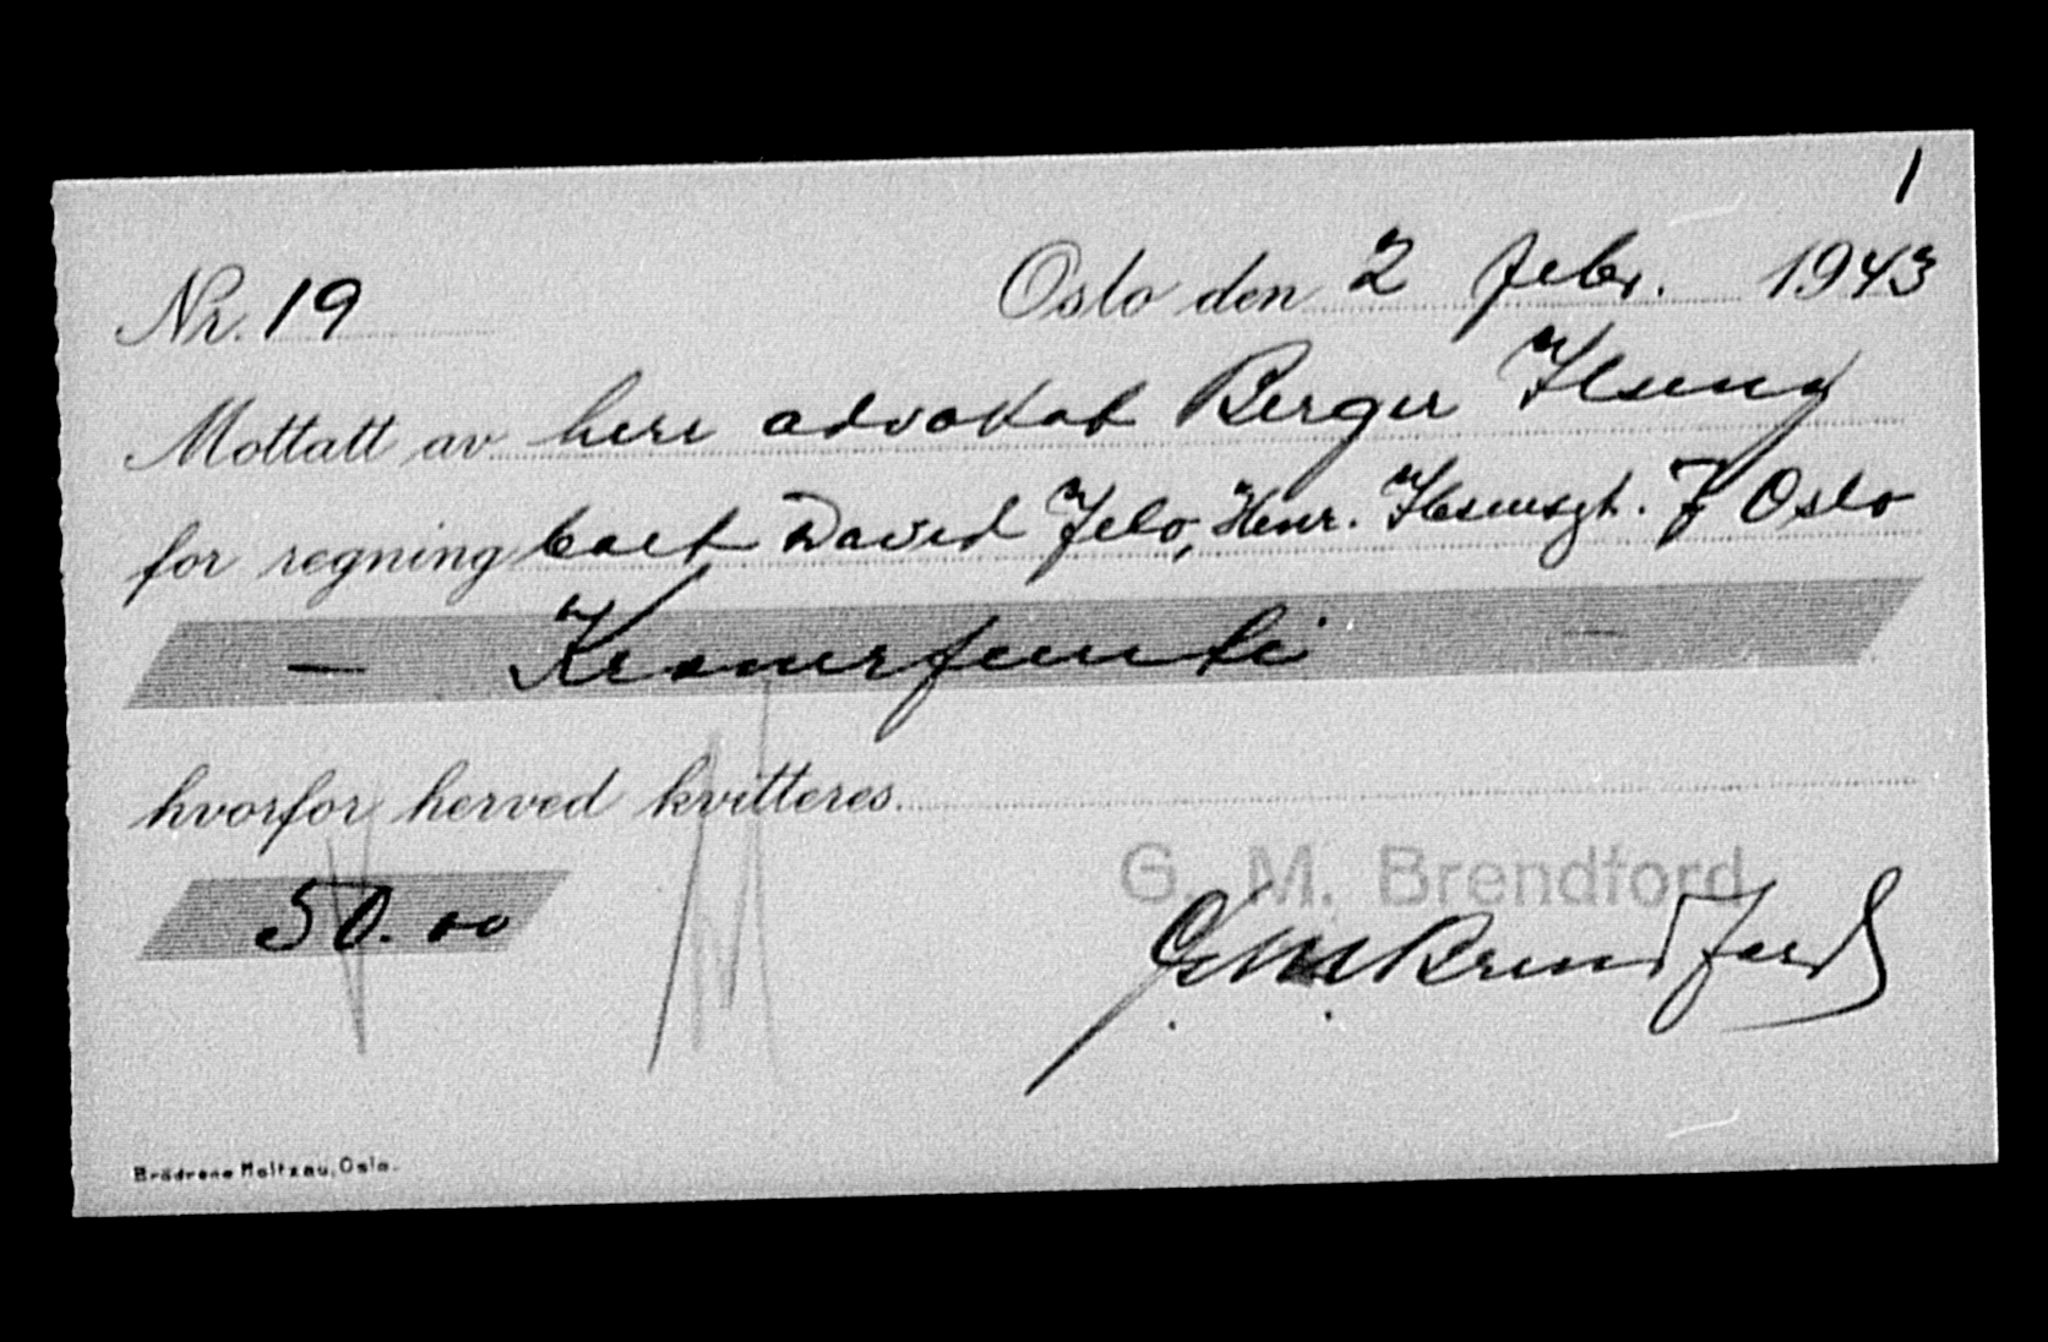 1
Nr. 19 Oslo den 2 febr. 1943
Mottatt av herr advokat Berger
for regning David Jelo, Henr. 7 Oslo
— Kronerfemti —
hvorfor herved kvitteres
50.00
G. M. Brendford
G.M. Brendford
Brødrene Moltzau, Oslo.